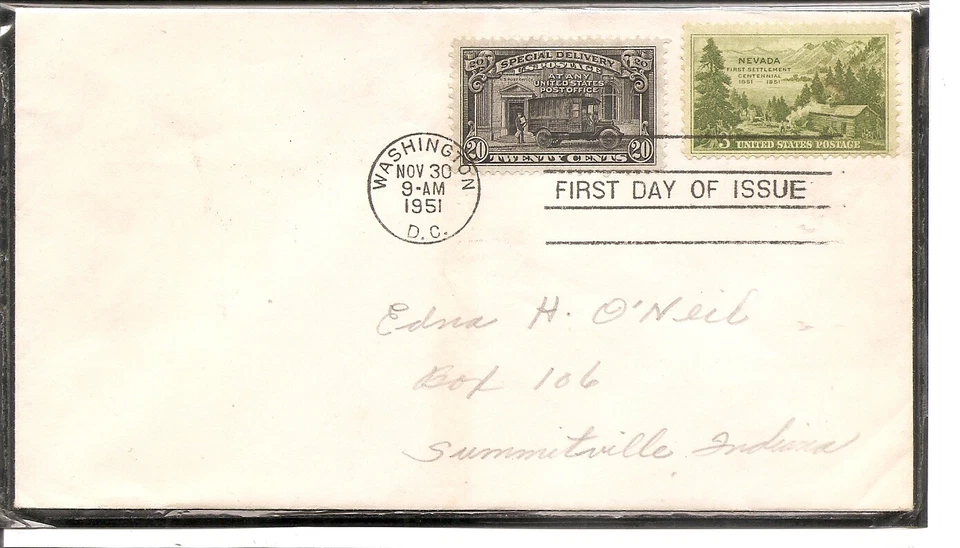 20 SPECIAL DELIVERY 20
U.S. POSTAGE
AT ANY
UNITED STATES
POST OFFICE
20 TWENTY CENTS 20
NEVADA
FIRST SETTLEMENT
CENTENNIAL
1851 – 1951
3¢ UNITED STATES POSTAGE
WASHINGTON
NOV 30
9-AM
1951
D.C.
FIRST DAY OF ISSUE
Edna H. O'Neil
Box 106
Summitville Indiana